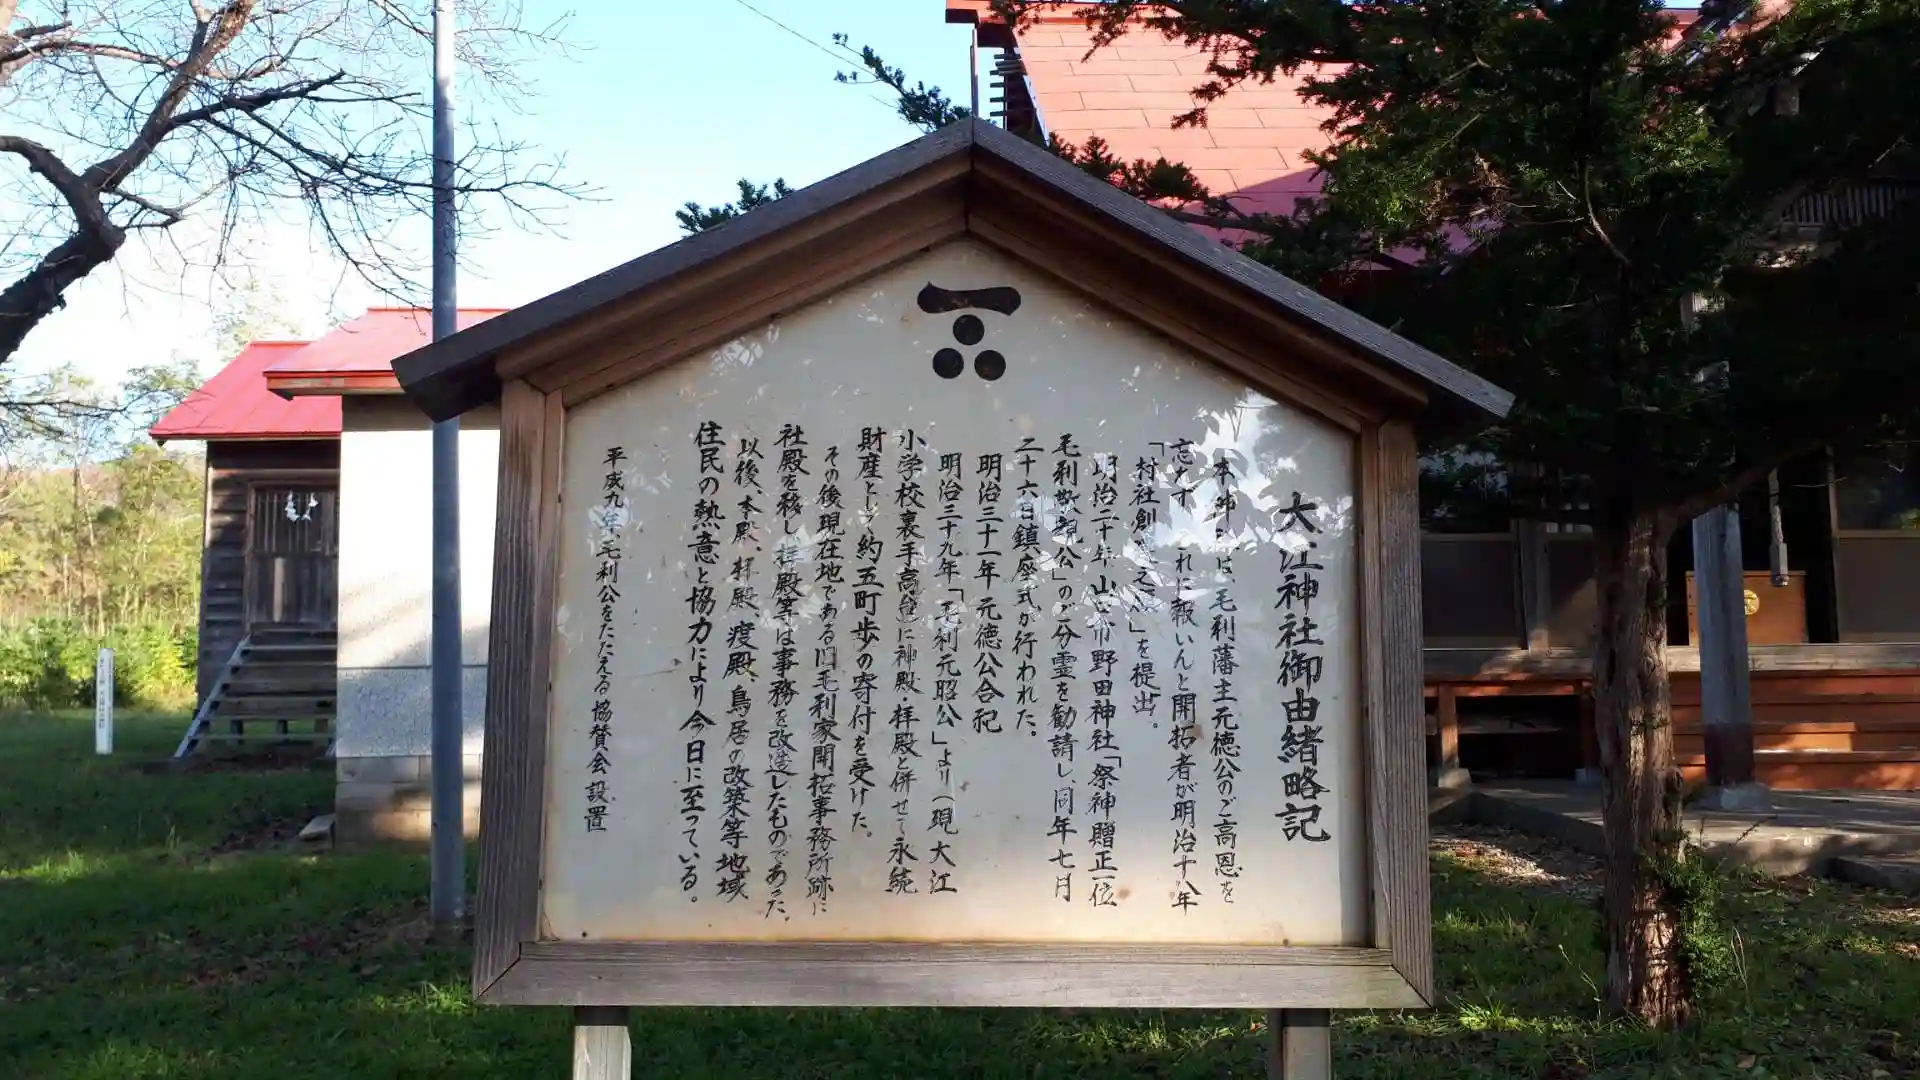 大江神社御由緒略記
本神社は、毛利藩主元徳公のご高恩を
忘れず これに報いんと開拓者が明治十八年
「村社創 之 」を提出。
明治二十年 山口市野田神社「祭神贈正一位
毛利敬親公」のご分霊を勧請し、同年七月
二十六日鎮座式が行われた。
明治三十一年 元徳公合祀
明治三十九年「毛利元昭公」より(現大江
小学校裏手高台に神殿、拝殿と併せて永続
財産として約五町歩の寄付を受けた。
その後現在地である旧毛利家開拓事務所跡に
社殿を移し、拝殿等は事務を改造したものであった。
以後、本殿、拝殿、渡殿、鳥居の改築等地域
住民の熱意と協力により今日に至っている。
平成九年、毛利公をたたえる協賛会設置